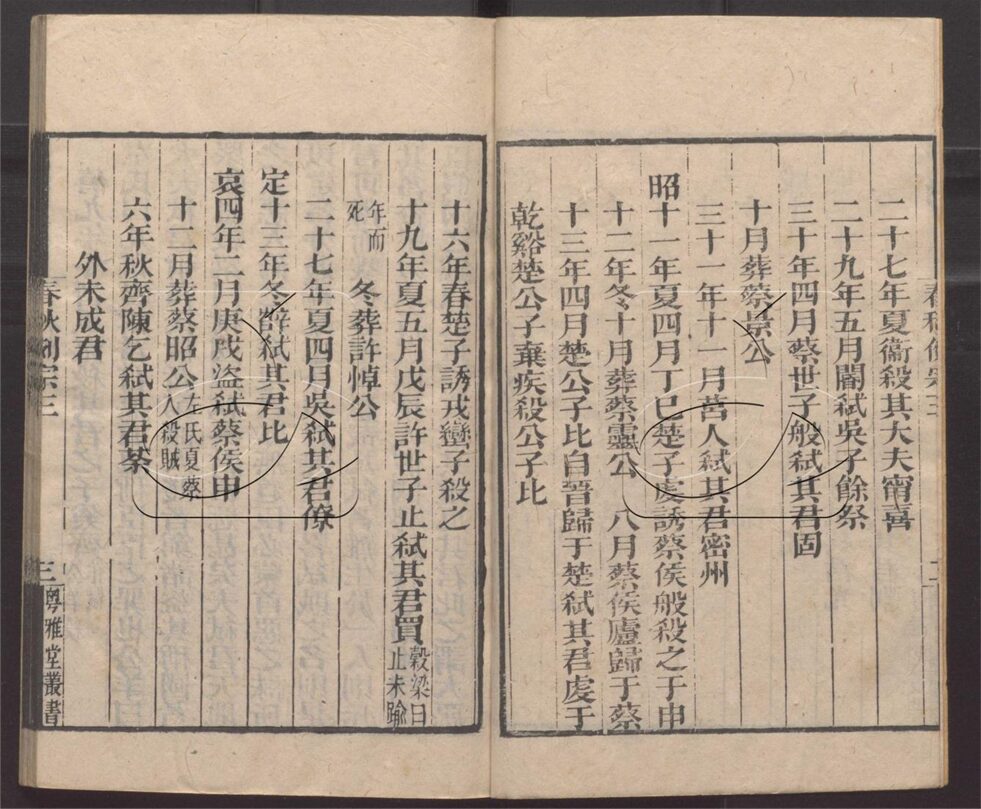 二十七年夏衞殺其大夫甯喜
二十九年五月閽弑吳子餘祭
三十年四月蔡世子般弑其君固
十月葬蔡景公
三十一年十一月莒人弑其君密州
昭十一年夏四月丁巳楚子虔誘蔡侯般殺之于申
十二年冬十月葬蔡靈公　八月蔡侯廬歸于蔡
十三年四月楚公子比自晉歸于楚弑其君虔于
乾谿楚公子棄疾殺公子比
十六年春楚子誘戎蠻子殺之
十九年夏五月戊辰許世子止弑其君買穀梁曰止未踰
年而死　冬葬許悼公
二十七年夏四月吳弑其君僚
定十三年冬薛弑其君比
哀四年二月庚戌盜弑蔡侯申
十二月葬蔡昭公左氏夏蔡人殺賊
六年秋齊陳乞弑其君荼
外未成君
春秋例宗三　三　粵雅堂叢書